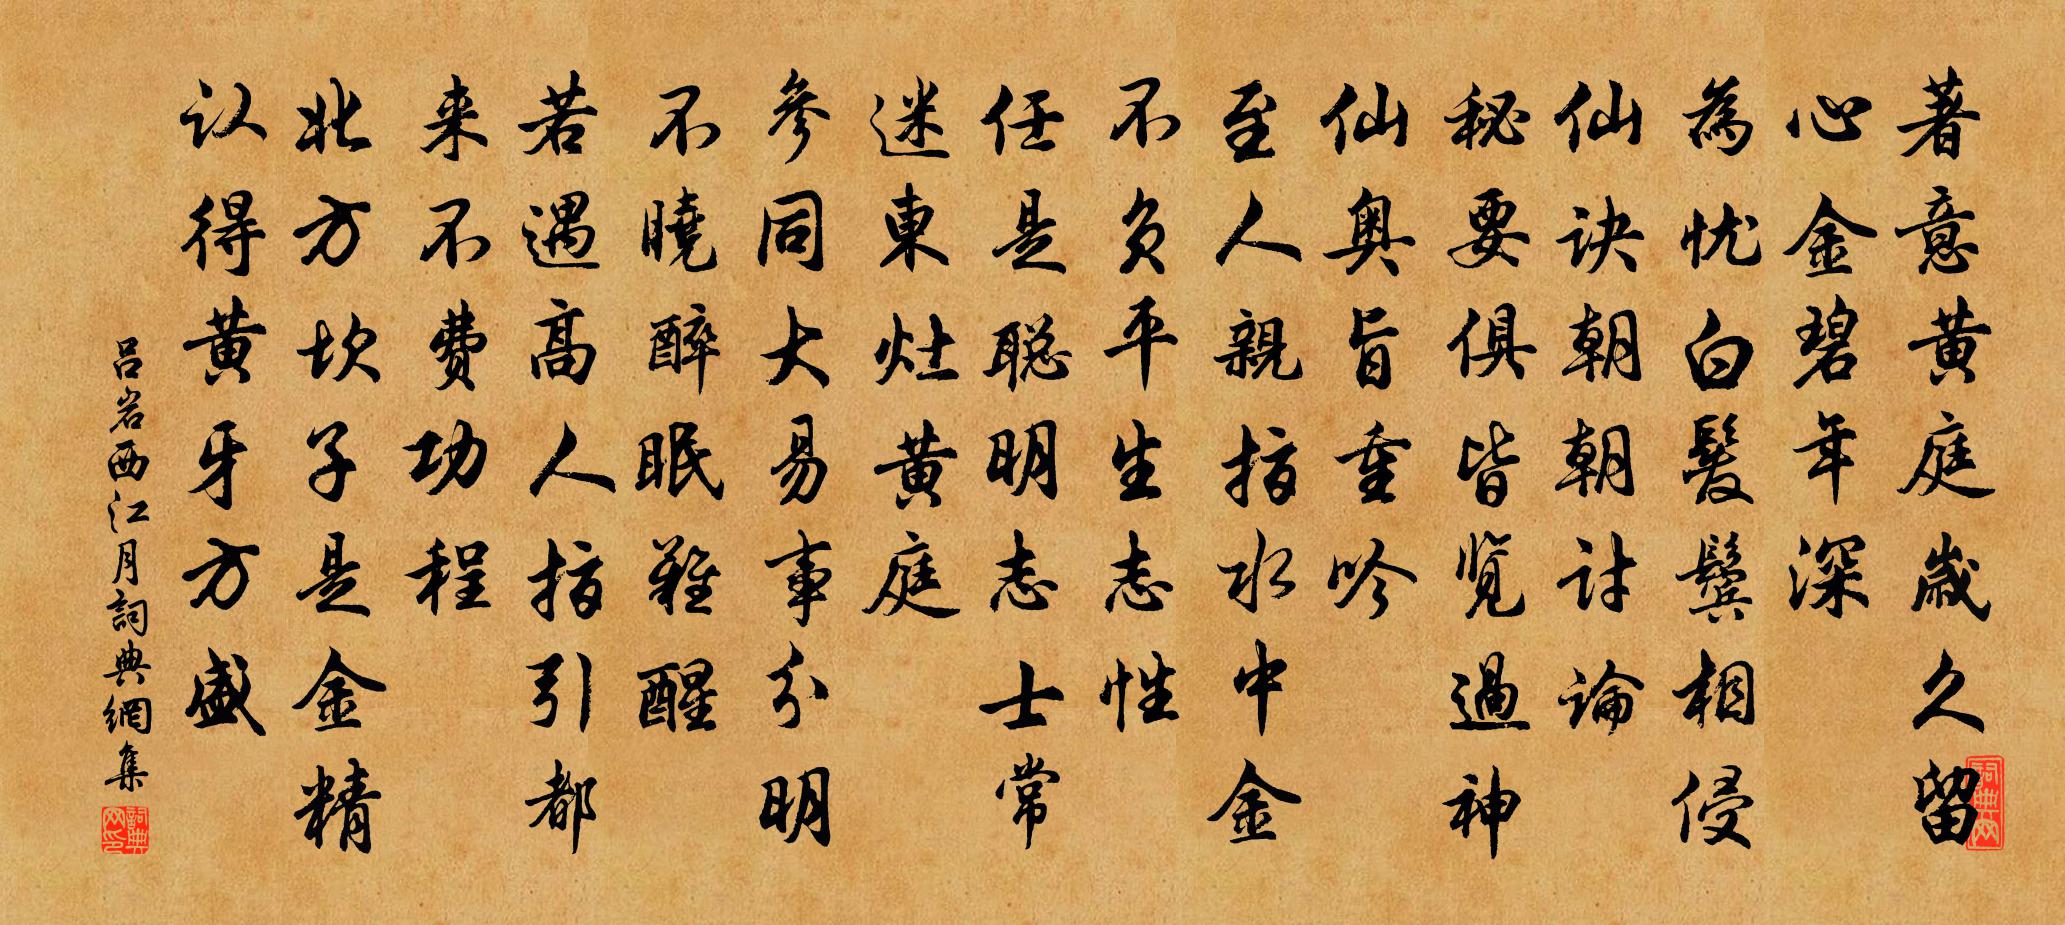 著意黄庭歳久留
心金碧年深
為忧白髮鬓相侵
仙诀朝朝討論
秘要俱皆览過神
仙奥旨重吟
至人親指水中金
不负平生志性
任是聪明志士常
迷東灶黄庭
參同大易事分明
不曉醉眠難醒
若遇高人指引都
来不費功程
北方坎子是金精
认得黄牙方盛
吕岩西江月詞典網集
詞典网
詞典网印